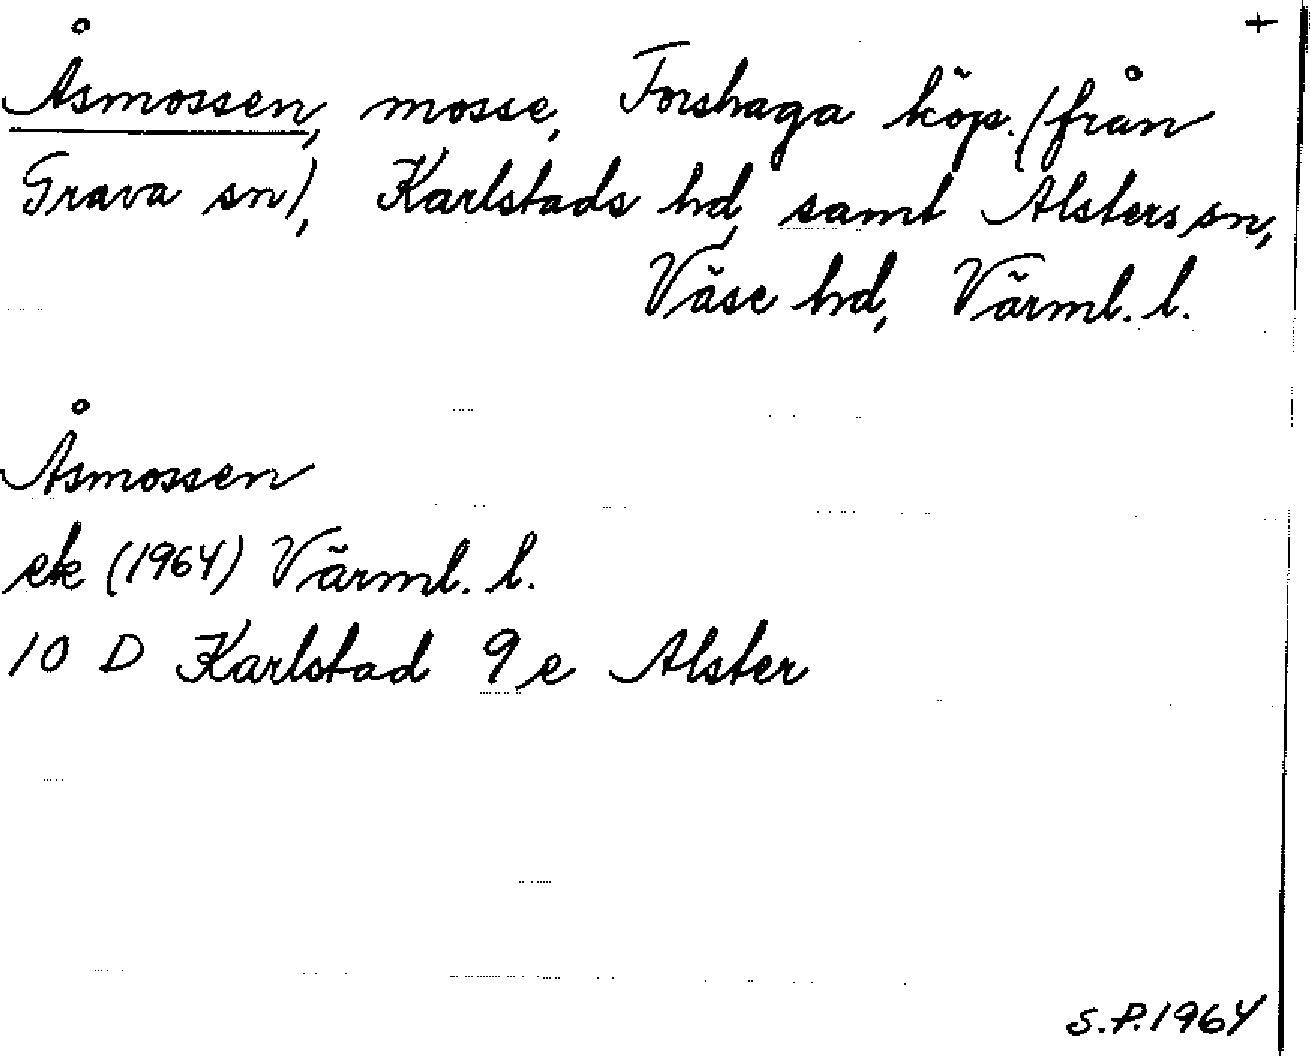 +
Åsmossen, mosse, Forshaga köp. (från
Grava sn), Karlstads hd, samt Alsters sn,
Väse hd, Värml. l.
Åsmossen
ek (1964) Värml. l.
10 D Karlstad 9 e Alster
S.P. 1964